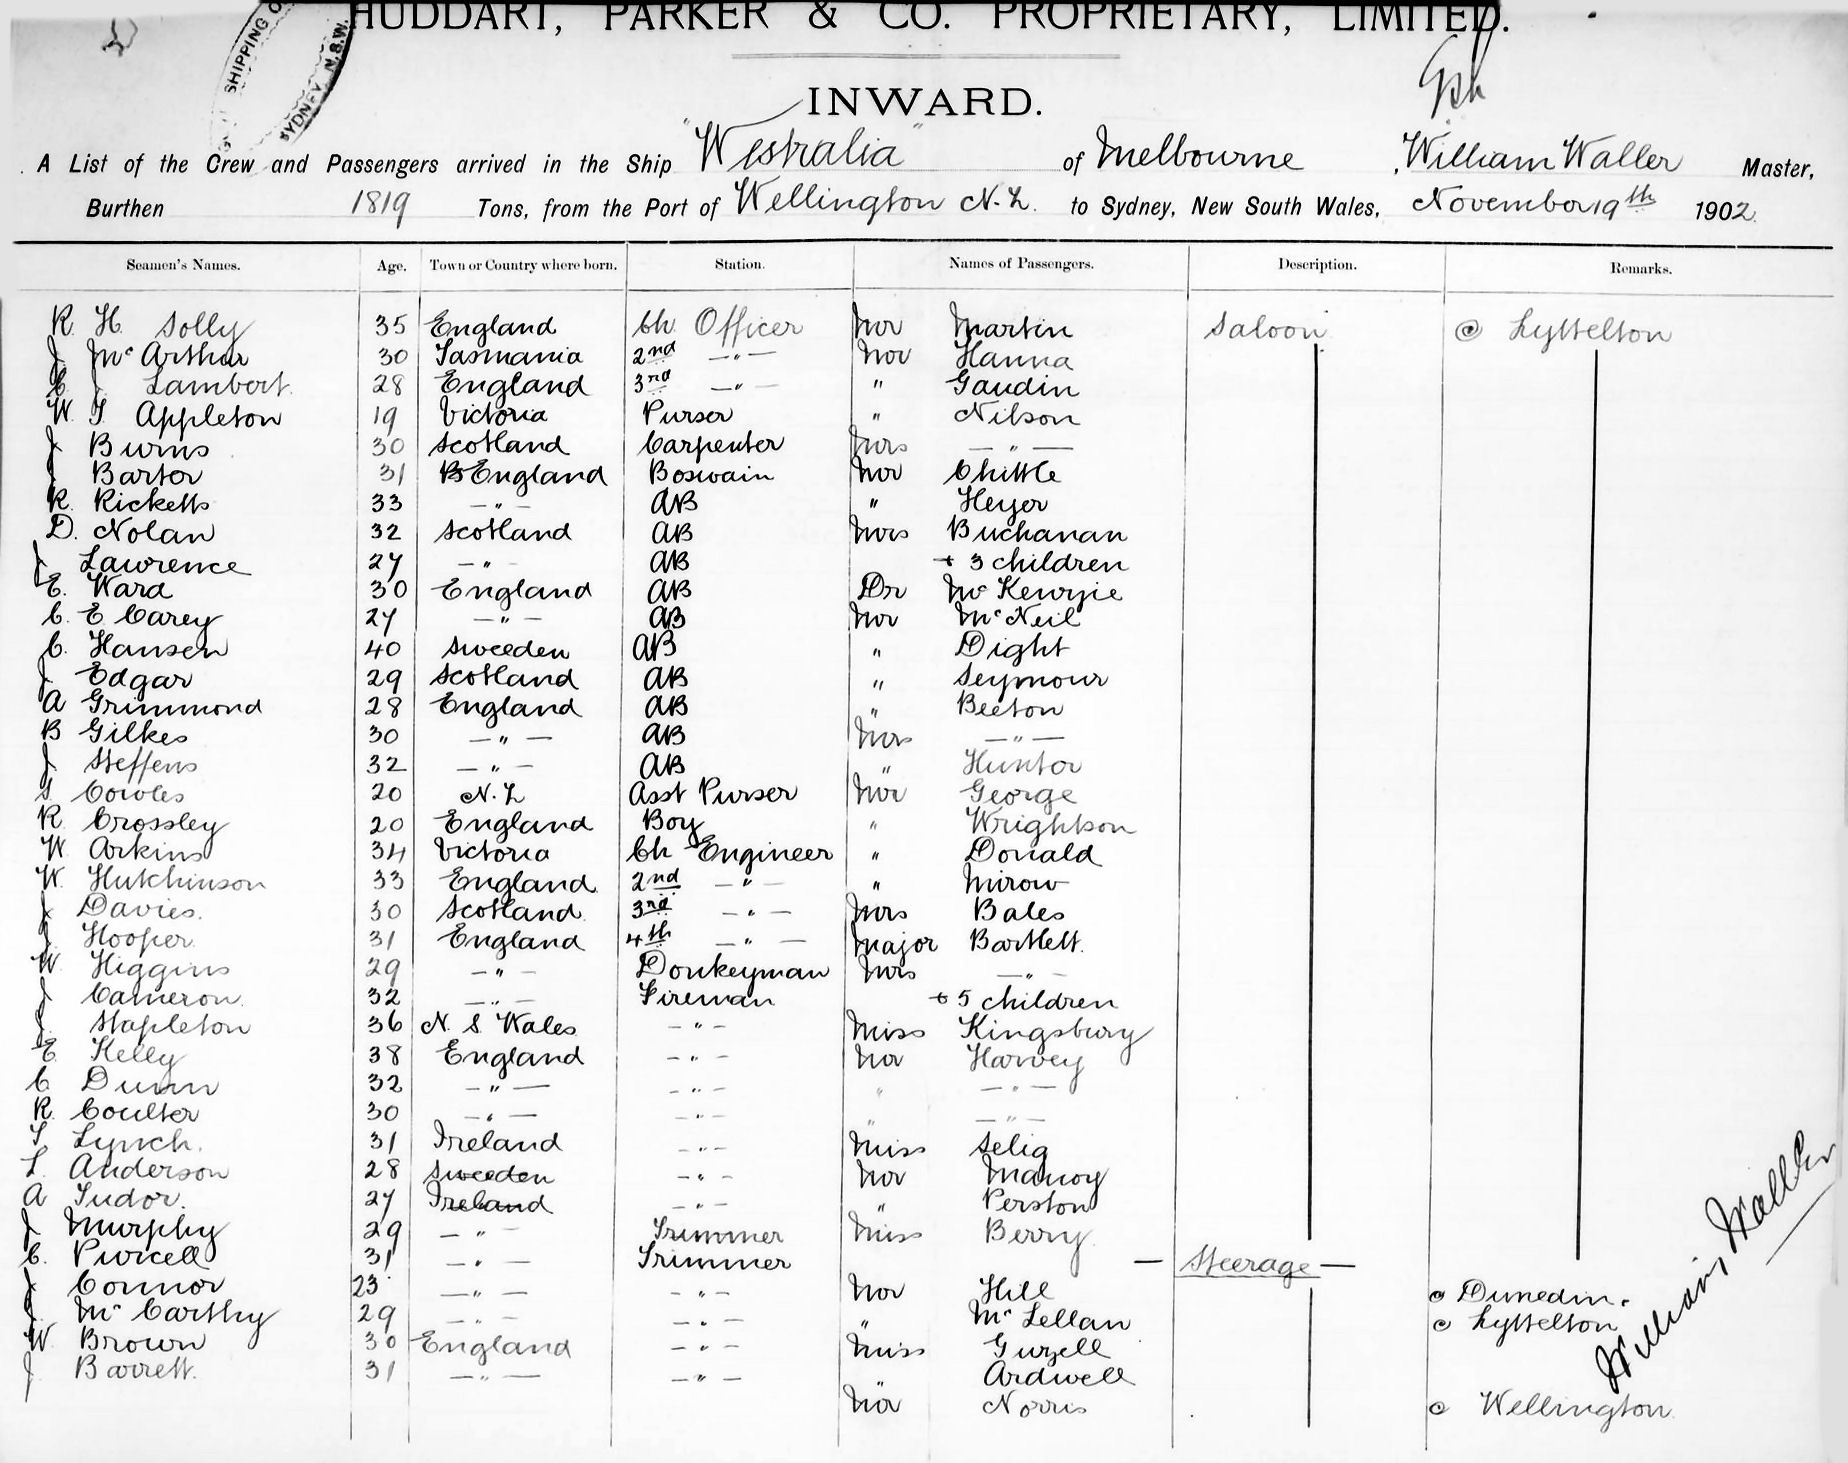 HUDDART, PARKER & CO. PROPRIETARY, LIMITED.
SHIPPING
SYDNEY N.S.W.
INWARD.
A List of the Crew and Passengers arrived in the Ship "Westralia" of Melbourne, William Waller Master,
Burthen 1819 Tons, from the Port of Wellington N.Z. to Sydney, New South Wales, November 19th 1902
Seamen's Names. Age. Town or Country where born. Station. Names of Passengers. Description. Remarks.
R. H. Solly 35 England Ch Officer Mr Martin Saloon @ Lyttelton
J McArthur 30 Tasmania 2nd —"— Mr Hanna
C J Lambert 28 England 3rd —"— " Gaudin
W. T. Appleton 19 Victoria Purser " Nilson
J Burns 30 Scotland Carpenter Mrs —"—
J Barter 31 England Boswain Mr Chittle
R. Ricketts 33 —"— AB " Heyer
D. Nolan 32 Scotland AB Mrs Buchanan
J Lawrence 27 —"— AB + 3 children
E. Ward 30 England AB Dr McKenzie
C. E Carey 27 —"— AB Mr McNeil
C. Hansen 40 Sweeden AB " Dight
J Edgar 29 Scotland AB " Seymour
A Grimmond 28 England AB " Beeton
B Gilkes 30 —"— AB Mrs —"—
J Steffens 32 —"— AB " Hunter
S. Cowles 20 N.Z Asst Purser Mr George
R. Crossley 20 England Boy " Wrightson
W. Arkins 34 Victoria Ch Engineer " Donald
W. Hutchinson 33 England 2nd —"— " Mirow
J Davies. 30 Scotland 3rd —"— Mrs Bales
J Hooper 31 England 4th —"— Major Bartlett.
W. Higgins 29 —"— Donkeyman Mrs —"—
J Cameron 32 —"— Fireman + 5 children
J. Stapleton 36 N. S. Wales —"— Miss Kingsbury
E. Kelly 38 England —"— Mr Harvey
C. Dunn 32 —"— —"— " —"—
R. Coulter 30 —"— —"— " —"—
T. Lynch. 31 Ireland —"— Miss Selig
L. Anderson 28 Sweeden —"— Mr Manoy
A Tudor. 27 Ireland —"— " Perston
J Murphy 29 —"— Trimmer Miss Berry
C. Purcell 31 —"— Trimmer — Steerage —
J Connor 23 —"— —"— Mr Hill @ Dunedin.
J. McCarthy 29 —"— —"— " McLellan @ Lyttelton
W. Brown 30 England —"— Miss Guzell
J. Barrett. 31 —"— —"— " Ardwell
Mr Norris @ Wellington
William Waller